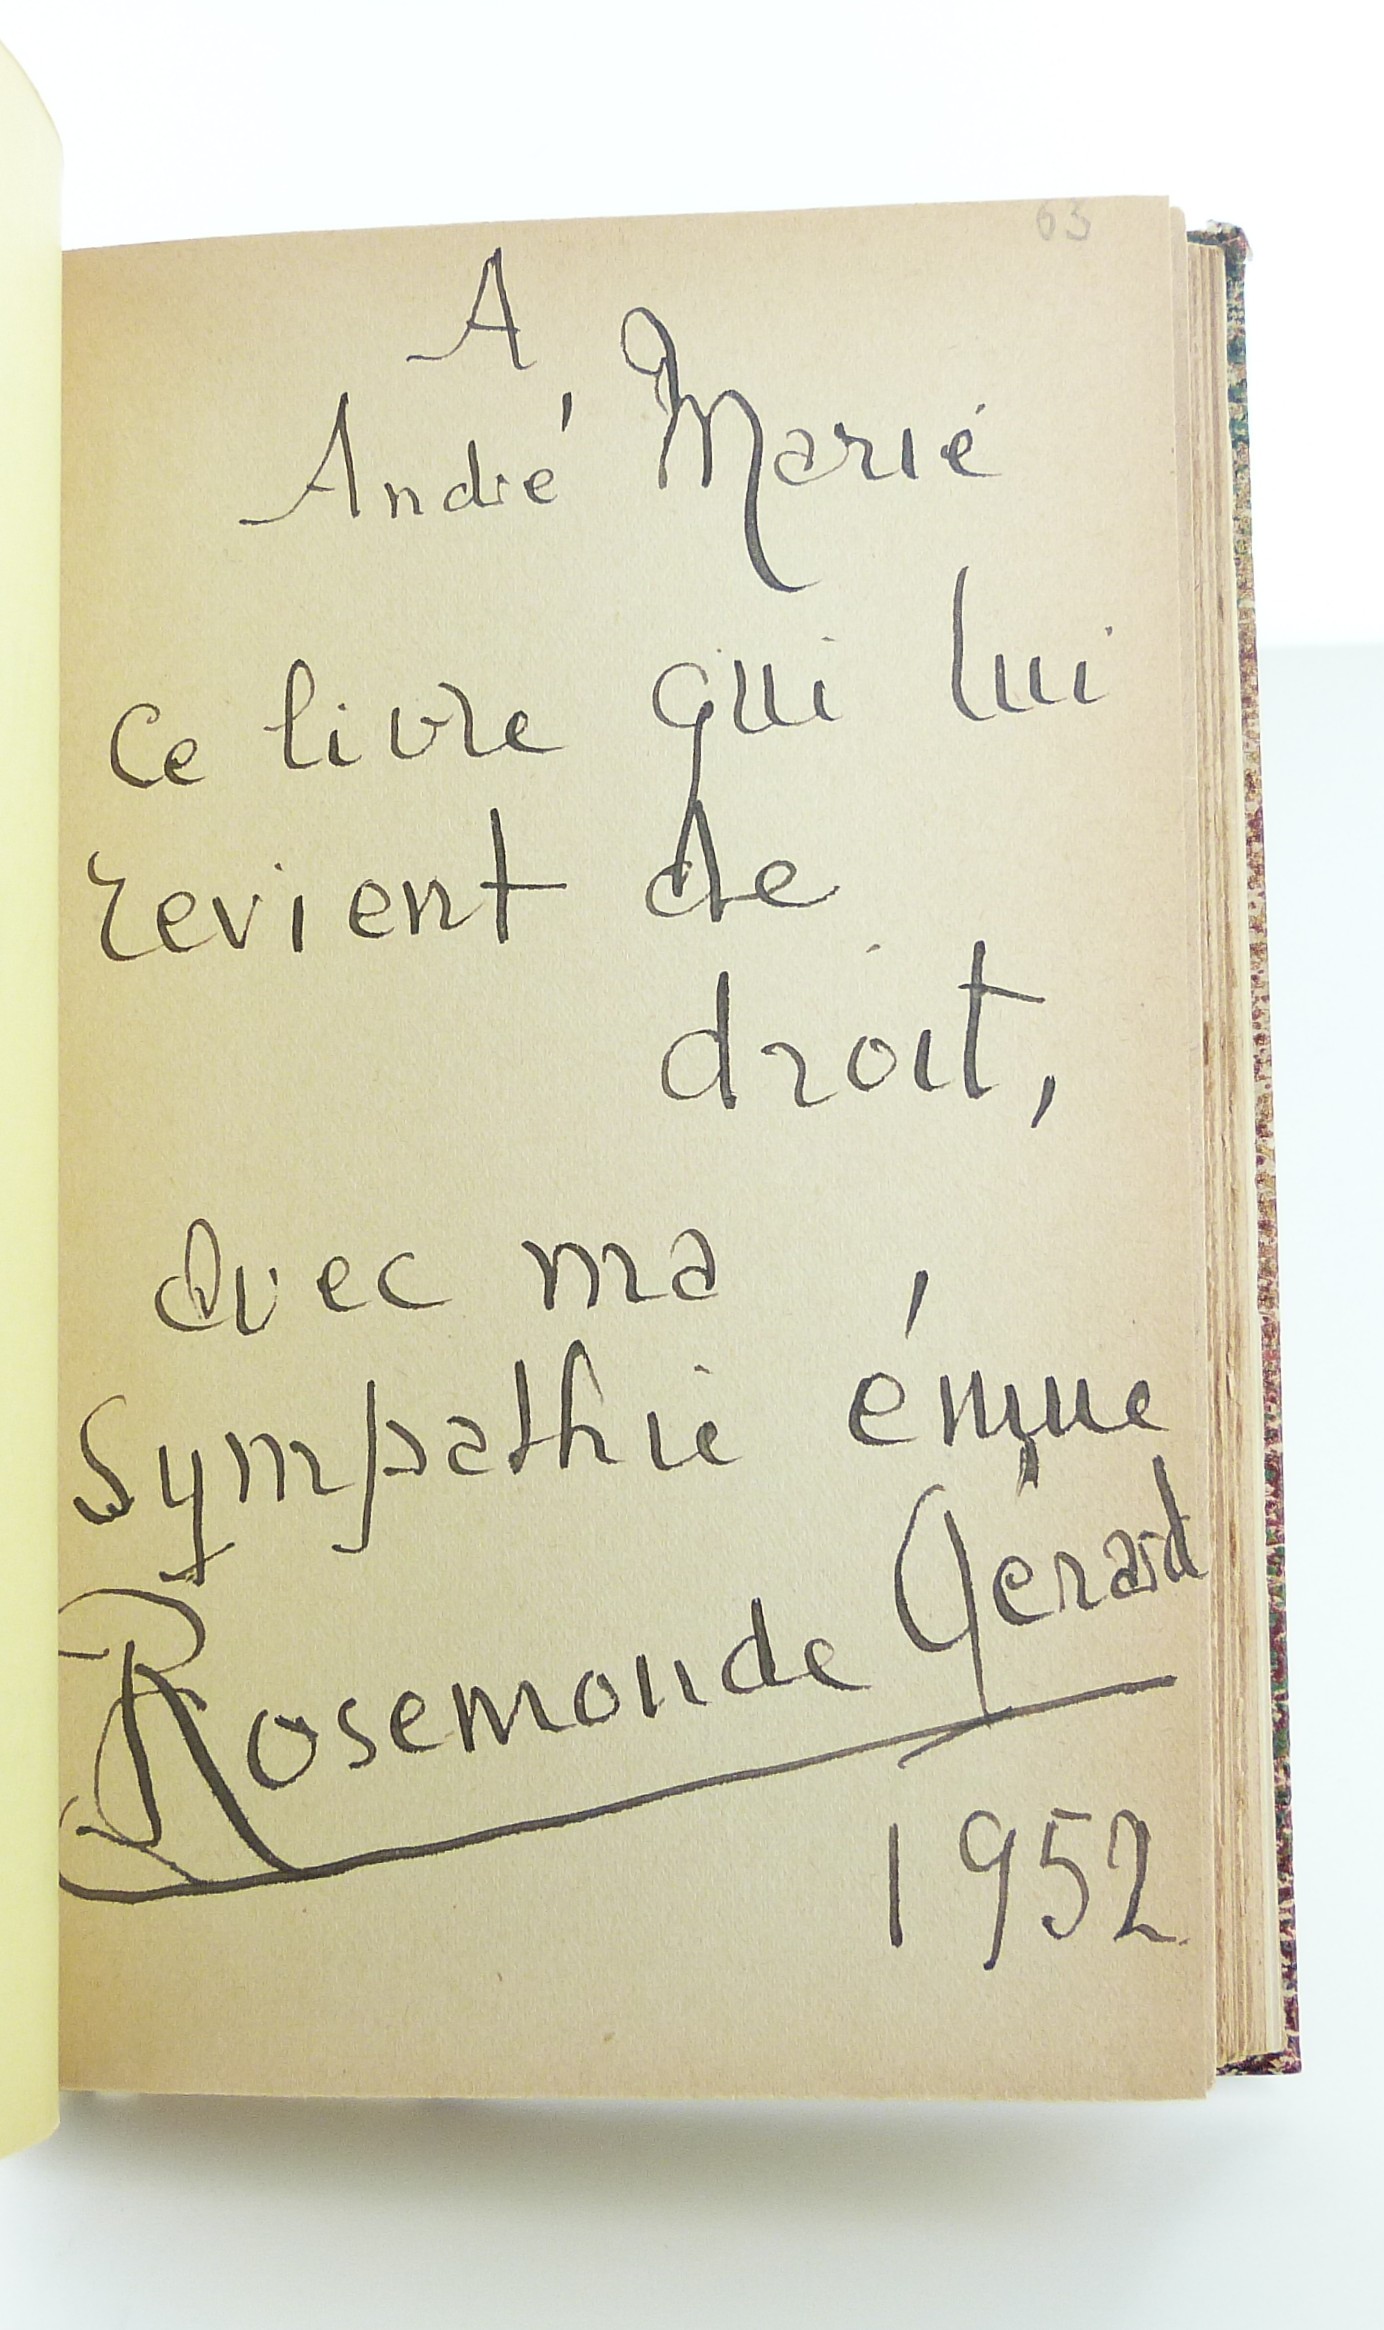 63
A
André Marie
Ce livre qui lui
revient de
droit,
avec ma
sympathie émue
Rosemonde Gérard
1952